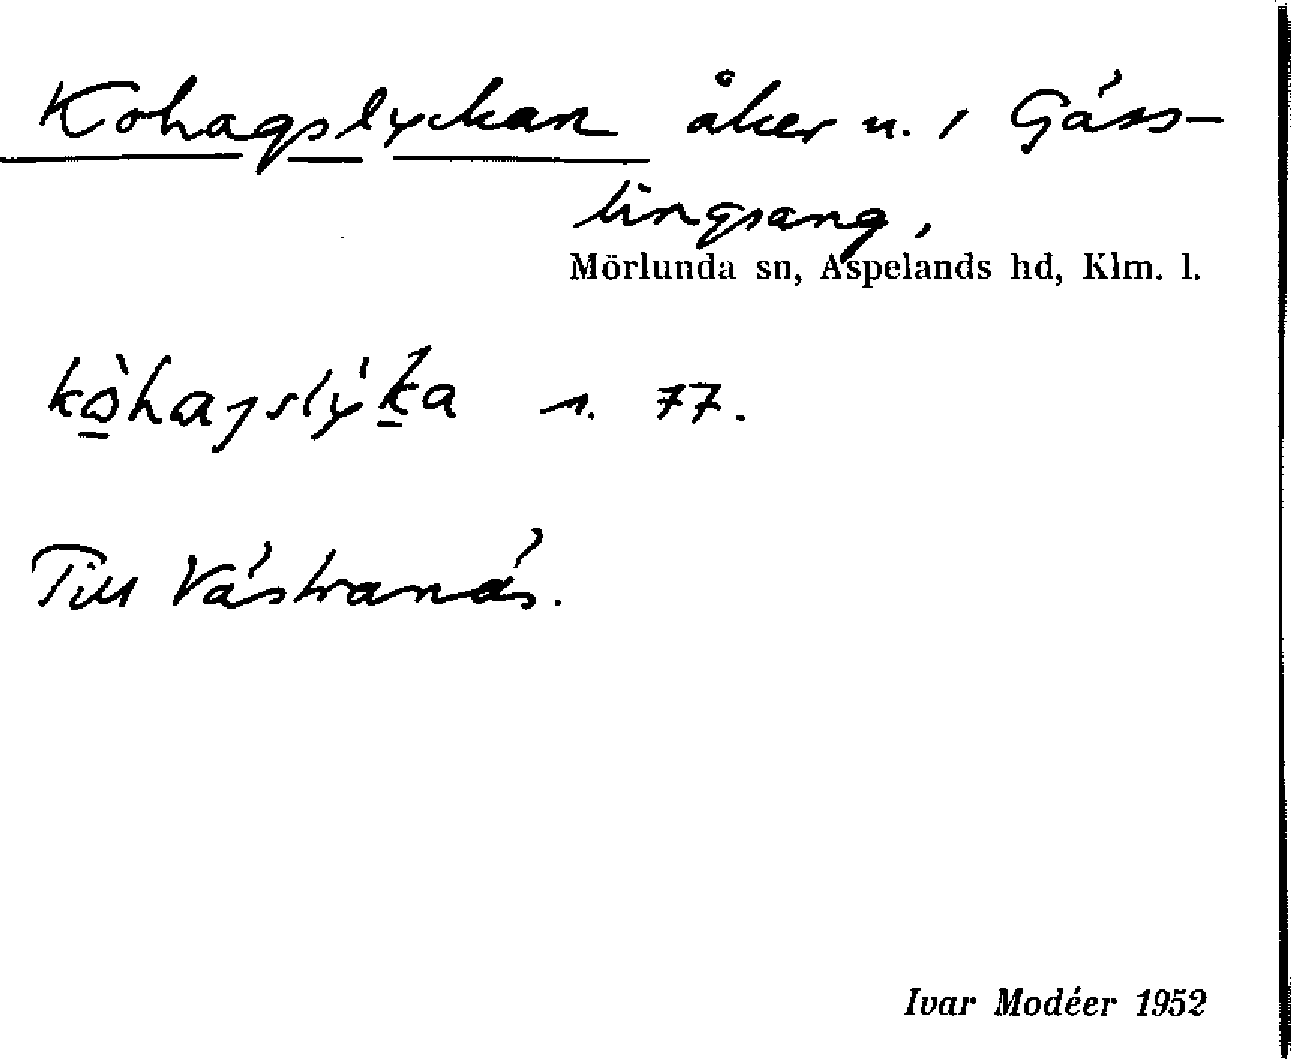 Kohagslyckan åker n. i Gäss-
lingsäng,
Mörlunda sn, Aspelands hd, Klm. l.
kòhagslýka n. 77.
Till Västranäs.
Ivar Modéer 1952